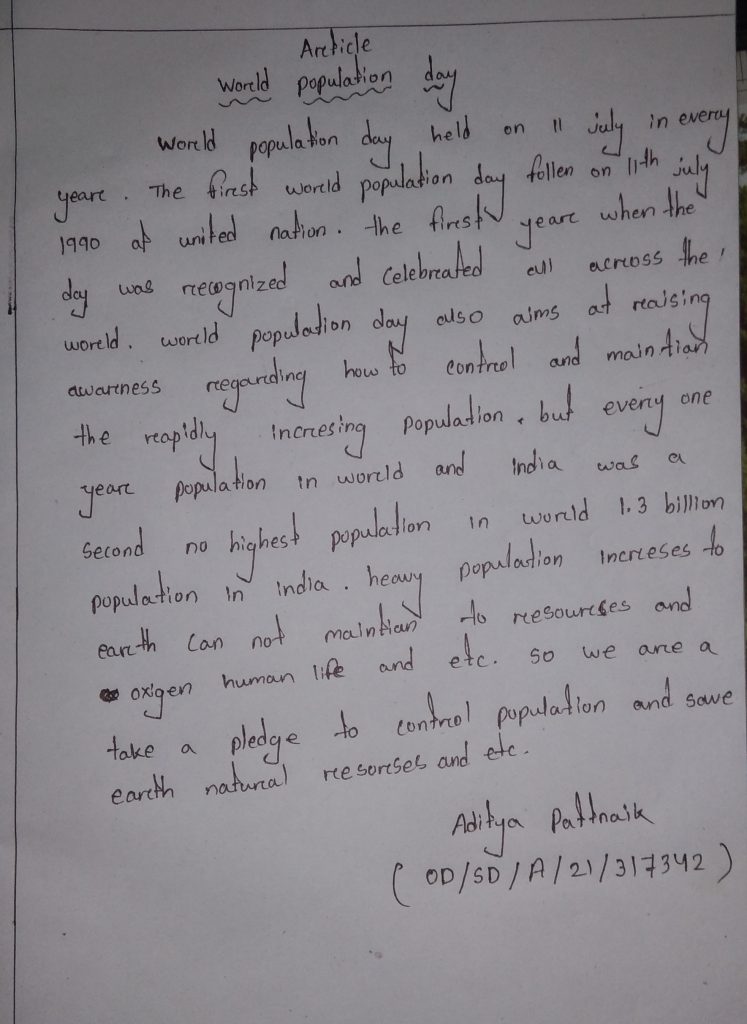 Article
World population day
World population day held on 11 july in every
year. The first world population day follen on 11th july
1990 at united nation. the first year when the
day was recognized and Celebrated all across the
world. world population day also aims at raising
awarness regarding how to control and maintian
the rapidly incresing population, but every one
year population in world and india was a
second no highest population in world 1.3 billion
population in india. heavy population increses to
earth can not maintian to resourcses and
oxigen human life and etc. so we are a
take a pledge to control population and save
earth natural resorses and etc.
Aditya Pattnaik
(OD/SD/A/21/317342)